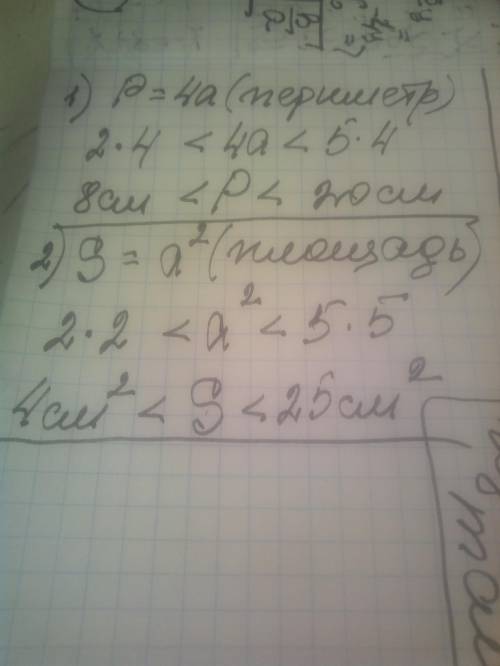 1) P = 4a (периметр)
2·4 < 4a < 5·4
8см < P < 20см
2) S = a² (площадь)
2·2 < a² < 5·5
4см² < S < 25см²